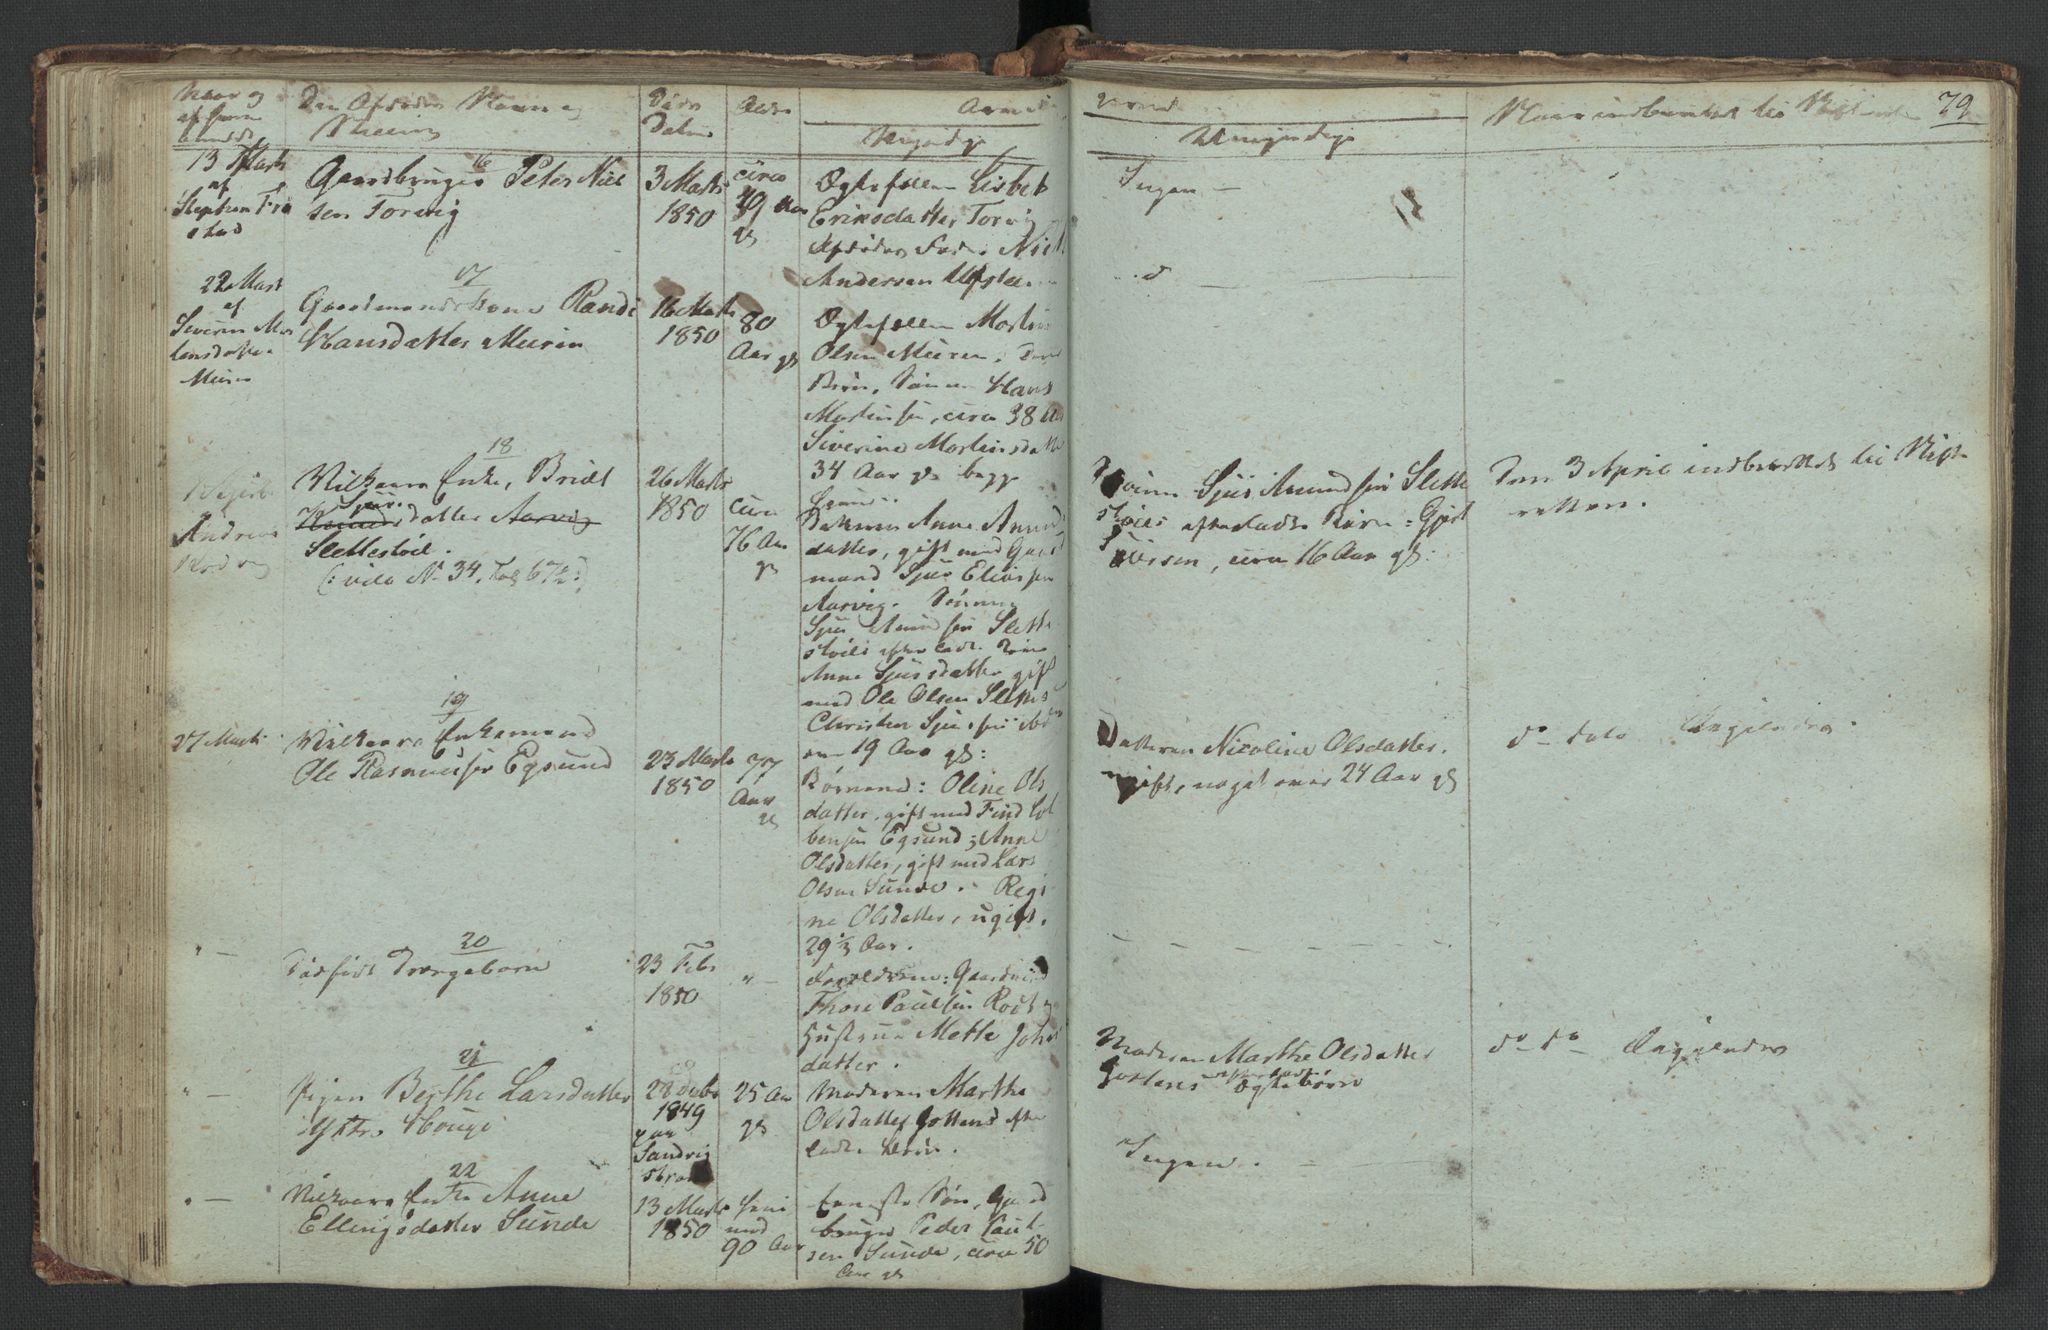 Naar og
af hvem
anmeldt
Den Afdødes Navn og
Stilling
Døds
Datum
Alder
Myndige
Umyndige
Naar indberettet til Skifteretten
79
13 Marts
af
Stephen
16
Gaardbruger Peter Niel
sen Torvig
3 Marts
1850
circa
39 Aar
gl
Ægtefællen Lisbet
Eriksdatter Torvig
Afdødes Fader Niels
Andersen
Ingen —
22 Marts
af
Severine Mor
tensdatter
Muren
17
Gaardmandskone Randi
Hansdatter Muren
16 Marts
1850
80
Aar gl
Ægtefællen Morten
Olsen Muren. Deres
Børn, Sønnen Hans
Mortensen, circa 38 Aar
Siverine Mortensdatter
34 Aar gl begge
Andreas
18
Vilkaars Enke, Bridt
Sjurs
datter Aarvig
Slettestøil.
(: vide No 34, Fol 67½:)
26 Marts
1850
circa
76 Aar
gl
Datteren Anne Amunds
datter, gift med Gaard
mand Sjus Eliassen
Aarvig. Sønnen
Sjus Amundsen Slette
støils efterladte Børn
Anne Sjusdatter gift
med Ole Olsen Slettes
Christen Sjussen
19 Aar gl:
Sønnen Sjus Amundsen Slette
støils efterladte Børn: Gjert
Siursen, circa 16 Aar gl:
Den 3 April indberettet til Skifte
retten.
27 Marts
19
Vilkaars Enkemand
Ole Rasmussen Egsund
23 Marts
1850
77
Aar
gl
Børnene: Oline Ols
datter, gift med Find Col
bensen Egsund; Anne
Olsdatter, gift med Lars
Olsen Sunde. Regi
ne Olsdatter, ugift,
29 ½ Aar.
Datteren Nicoline Olsdatter.
ugift, noget over 24 Aar gl
do dato Angjældende
" —
20
Dødfødt Drengebarn
23 Febr
1850
" —
Forældrene: Gaardmand
Thore Paulsen Rødt og
Hustrue Mette Johns
datter.
" —
21
Pigen Berthe Larsdatter
Yttre Houge
28 Debr
1849
paa
Sandvig
strand
25 Aar
gl
Moderen Marthe
Olsdatter Gottens efter
ladte Børn.
Moderen Marthe Olsdatter
Gottens efterladte Ægtebørn
do do Angjældende
" —
22
Vilkaars Enke Anne
Ellingsdatter Sunde
13 Marts
1850
hen
mod
90 Aar
Eeneste Søn, Gaard
bruger Peder Paul
sen Sunde, circa 50
Aar gl
Ingen. —